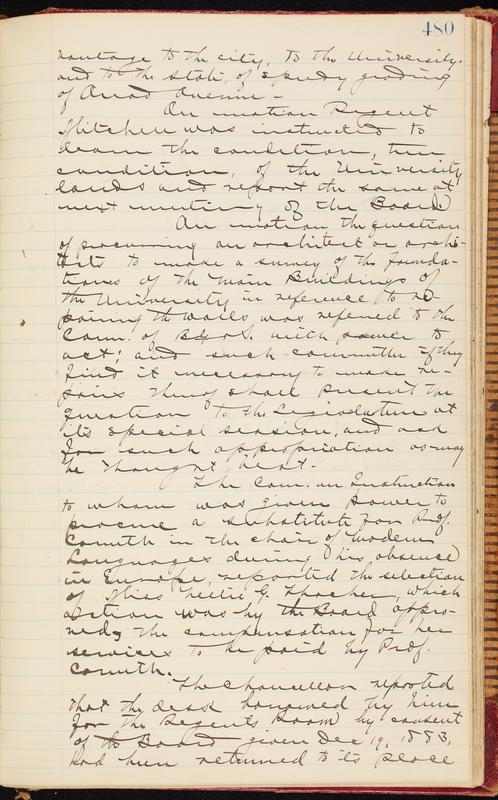 480
vantage to the city, to the University.
and to the State, of speedy grading
of Avenue –
On motion Regent
Mitchell was instructed to
learn the condition, true
condition, of the University
lands and report the same at
next meeting of the Board
On motion the question
of procuring an architect or archi-
tects to make a survey of the founda-
tions of the Main Buildings of
the University in reference to re-
pairing the walls was referred to the
Com. of B & G. with power to
act; and such committee if they
find it necessary to make re-
pairs thereof shall present the
question to the Legislature at
its special session, and ask
for such appropriation as may
be thought best.
The Com. on Instruction
to whom was given power to
procure a substitute for Prof.
in the chair of Modern
Languages during his absence
in Europe, reported the selection
of Miss Nellie G. which
action was by the Board appro-
ved, the compensation for her
services to be paid by Prof.
The Chancellor reported
that the desk borrowed by him
for the Regents Room by consent
of the Board given Dec 19, 1883,
had been returned to its place